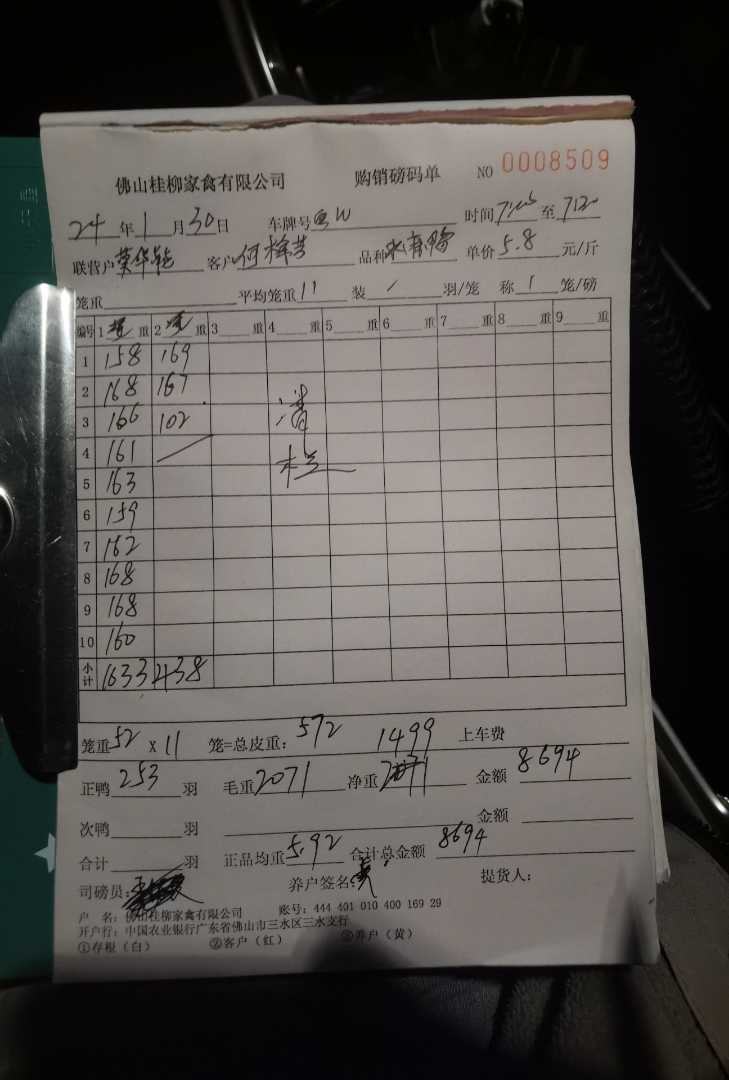 佛山桂柳家禽有限公司 购销磅码单 NO 0008509
24 年 1 月 30 日 车牌号 时间 至
联营户 客户 何 品种 单价 5.8 元/斤
笼重 平均笼重 11 装 / 羽/笼 称 1 笼/磅
编号 1 重 2 重 3 重 4 重 5 重 6 重 7 重 8 重 9 重
1 158 169
2 168 167
3 166 102 清
4 161
5 163
6 159
7 162
8 168
9 168
10 160
小计 1633 438
笼重 52 × 11 笼=总皮重: 572 1499 上车费
正鸭 253 羽 毛重 2071 净重 金额 8694
次鸭 羽 金额
合计 羽 正品均重 5.92 合计总金额 8694
司磅员: 养户签名: 提货人:
户 名: 佛山桂柳家禽有限公司 账号: 444 401 010 400 169 29
开户行: 中国农业银行广东省佛山市三水区三水支行
①存根(白) ②客户(红) ③养户(黄)